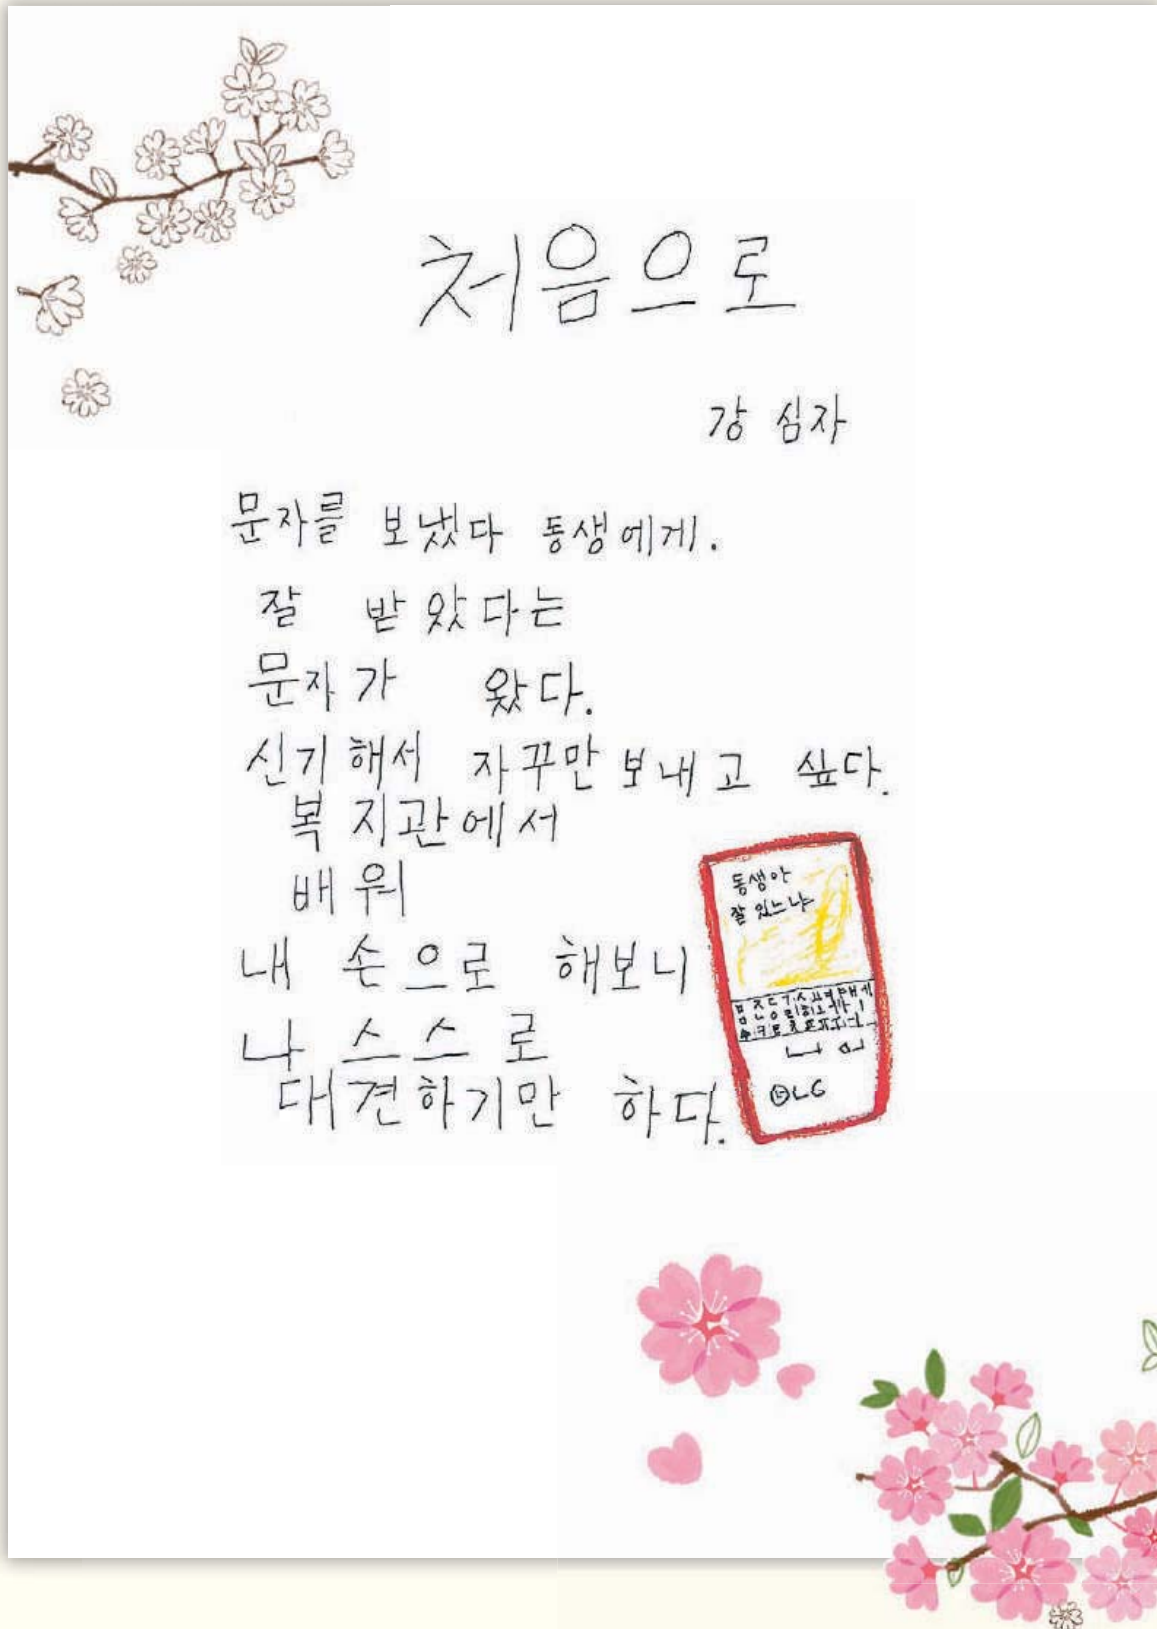 처음으로
강 심자
문자를 보냈다 동생에게.
잘 받았다는
문자가 왔다.
신기해서 자꾸만 보내고 싶다.
복지관에서
배워
내 손으로 해보니
나 스스로
대견하기만 하다.
동생아
잘 있느냐
LG